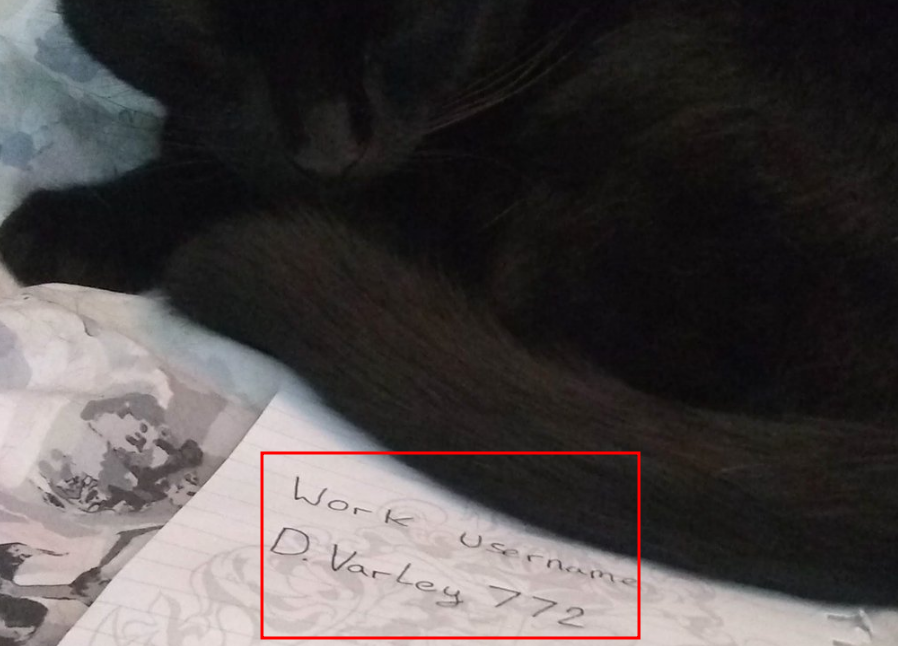 Work Username
D. Varley 772